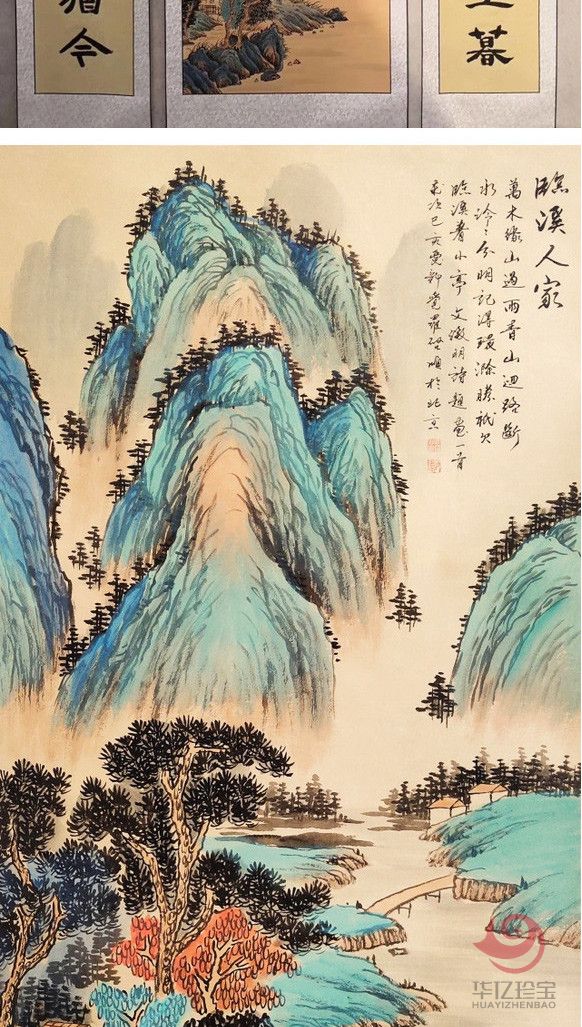 今
暮
臨溪人家
萬木緣山過雨青山迴路斷
水泠々分明記得環滁勝祇欠
臨溪着小亭 文徵明詩題畫一首
歲次己亥愛新覺羅 於北京
华亿珍宝
HUAYIZHENBAO